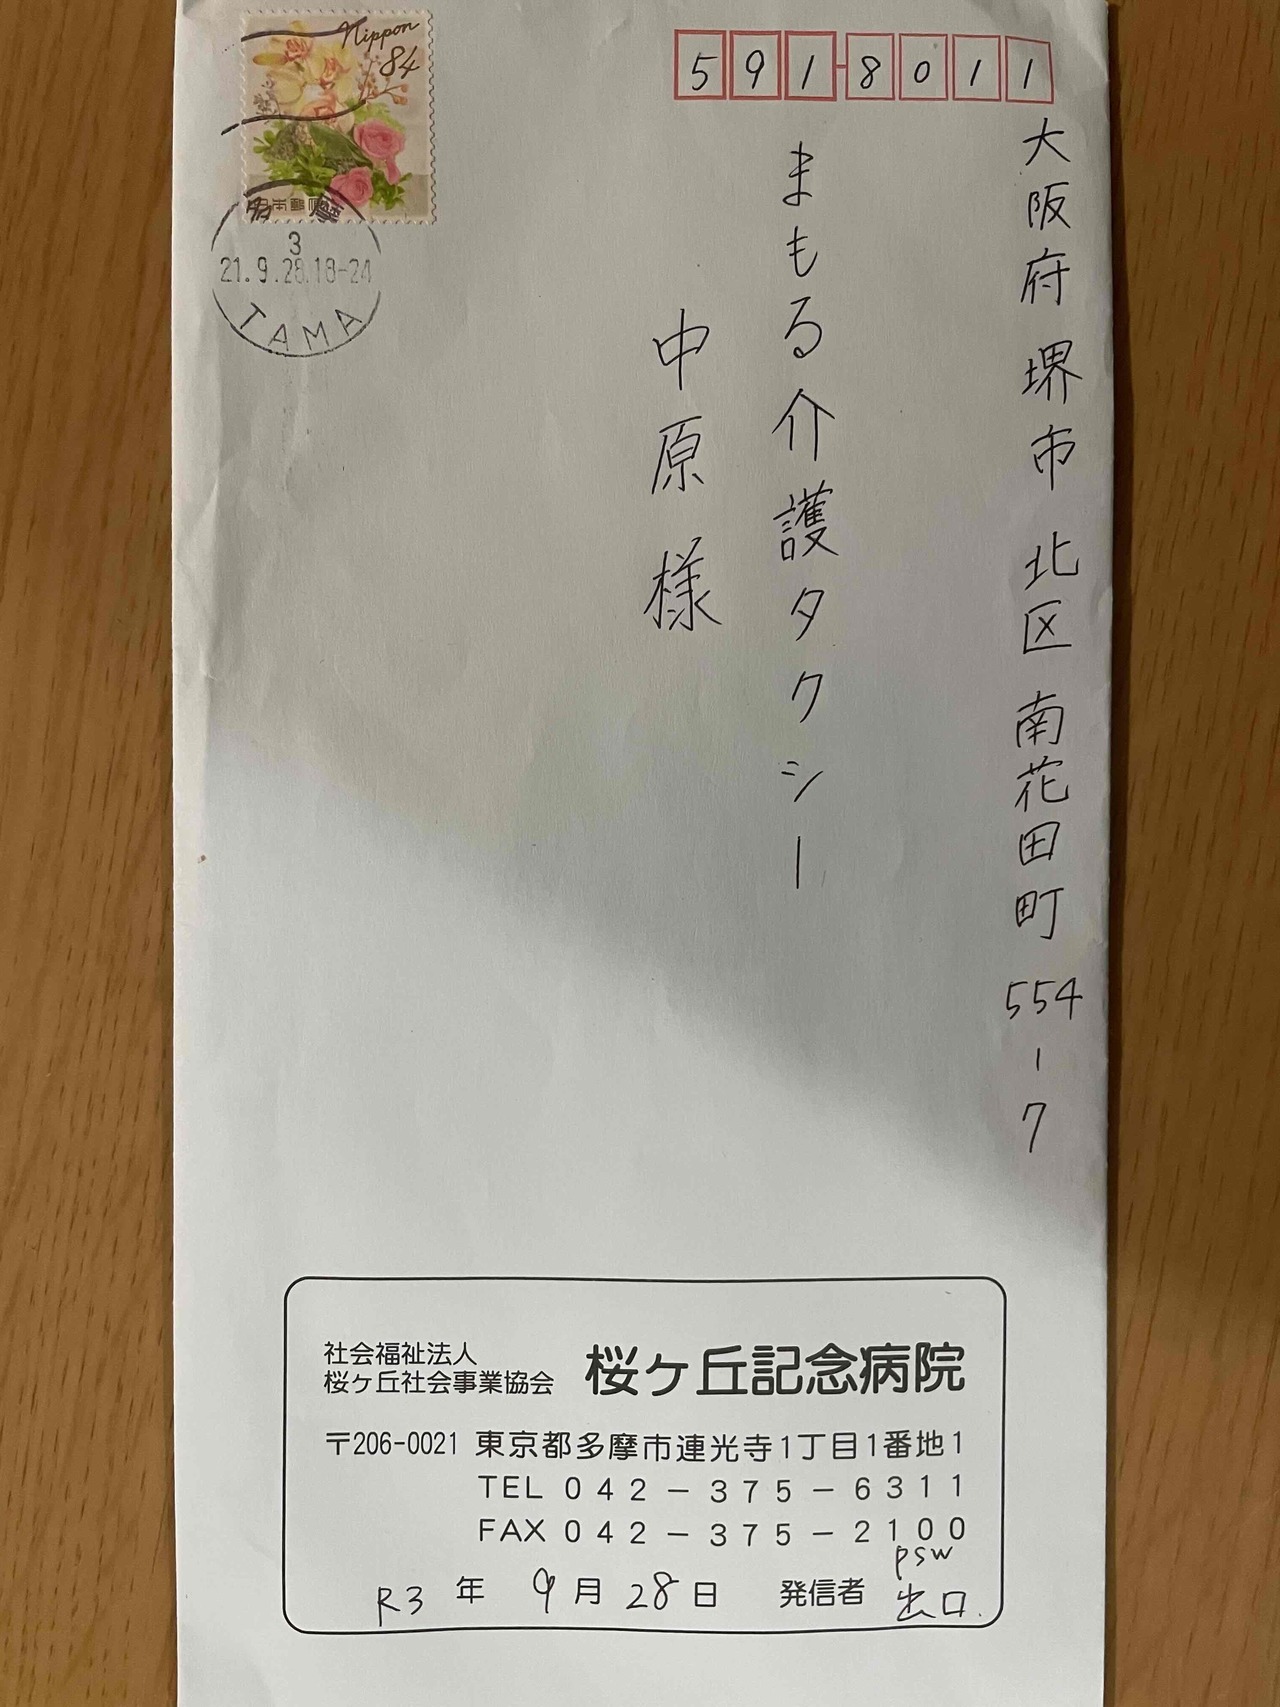 Nippon
84
日本郵便
多摩
3
21.9.28.18-24
TAMA
591-8011
大阪府堺市北区南花田町554-7
まもる介護タクシー
中原様
社会福祉法人
桜ヶ丘社会事業協会
桜ヶ丘記念病院
〒206-0021 東京都多摩市連光寺1丁目1番地1
TEL 042-375-6311
FAX 042-375-2100
PSW
R3年 9月28日 発信者 出口